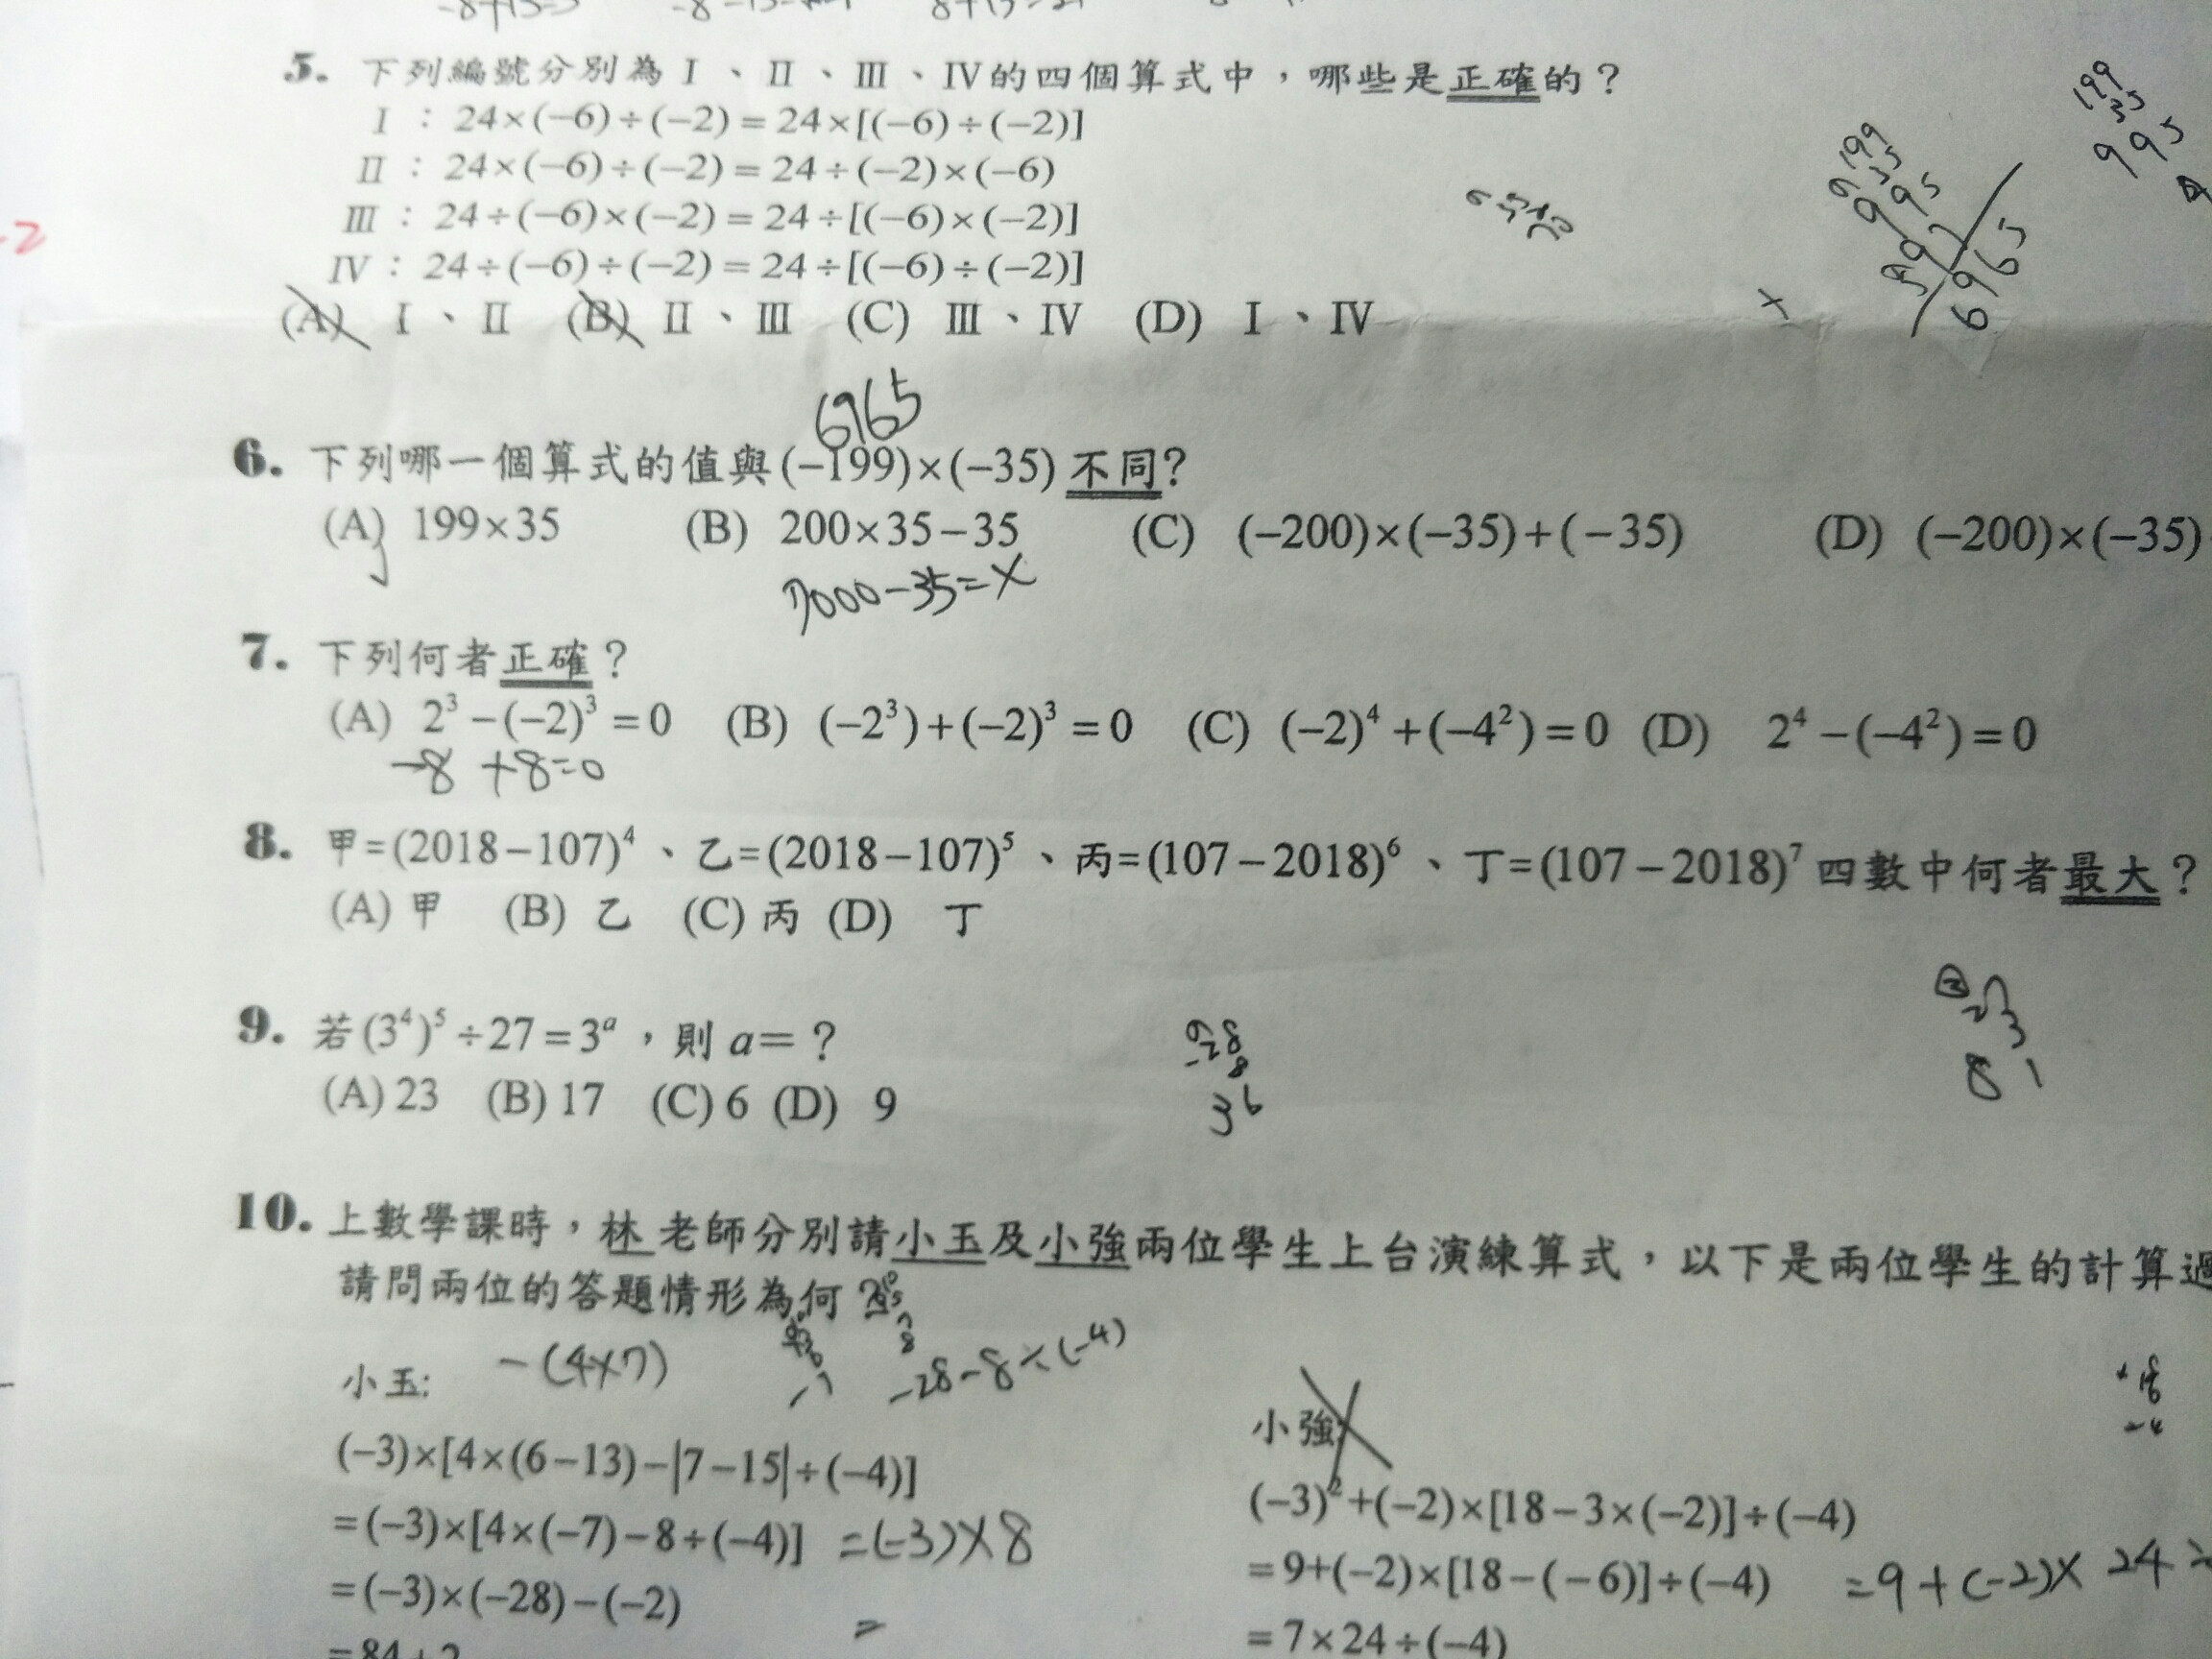 5. 下列編號分別為 I 、 II 、 III 、 IV的四個算式中，哪些是正確的？
I ： 24×(−6)÷(−2) = 24×[(−6)÷(−2)]
II ： 24×(−6)÷(−2) = 24÷(−2)×(−6)
III ： 24÷(−6)×(−2) = 24÷[(−6)×(−2)]
-2
IV ： 24÷(−6)÷(−2) = 24÷[(−6)÷(−2)]
(A) I 、 II (B) II 、 III (C) III 、 IV (D) I 、 IV
199
35
995
199
35
995
597
6965
6965
6. 下列哪一個算式的值與(−199)×(−35) 不同?
(A) 199×35 (B) 200×35−35 (C) (−200)×(−35)+(−35) (D) (−200)×(−35)
7000−35=X
7. 下列何者正確？
(A) 2³−(−2)³=0 (B) (−2³)+(−2)³=0 (C) (−2)⁴+(−4²)=0 (D) 2⁴−(−4²)=0
−8 +8=0
8. 甲=(2018−107)⁴ 、乙=(2018−107)⁵ 、丙=(107−2018)⁶ 、丁=(107−2018)⁷ 四數中何者最大？
(A) 甲 (B) 乙 (C) 丙 (D) 丁
9. 若(3⁴)⁵÷27=3ᵃ，則 a=？
(A) 23 (B) 17 (C) 6 (D) 9
36
81
10. 上數學課時，林 老師分別請小玉及小強兩位學生上台演練算式，以下是兩位學生的計算過
請問兩位的答題情形為何？
−(4×7)
−28−8÷(−4)
小玉:
(−3)×[4×(6−13)−|7−15|÷(−4)]
=(−3)×[4×(−7)−8÷(−4)] =(−3)×8
=(−3)×(−28)−(−2) =
=84+2
小強:
(−3)²+(−2)×[18−3×(−2)]÷(−4)
=9+(−2)×[18−(−6)]÷(−4) =9+(−2)×24÷
=7×24÷(−4)